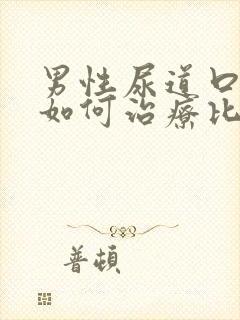 男性尿道口
如何治療比
普頓